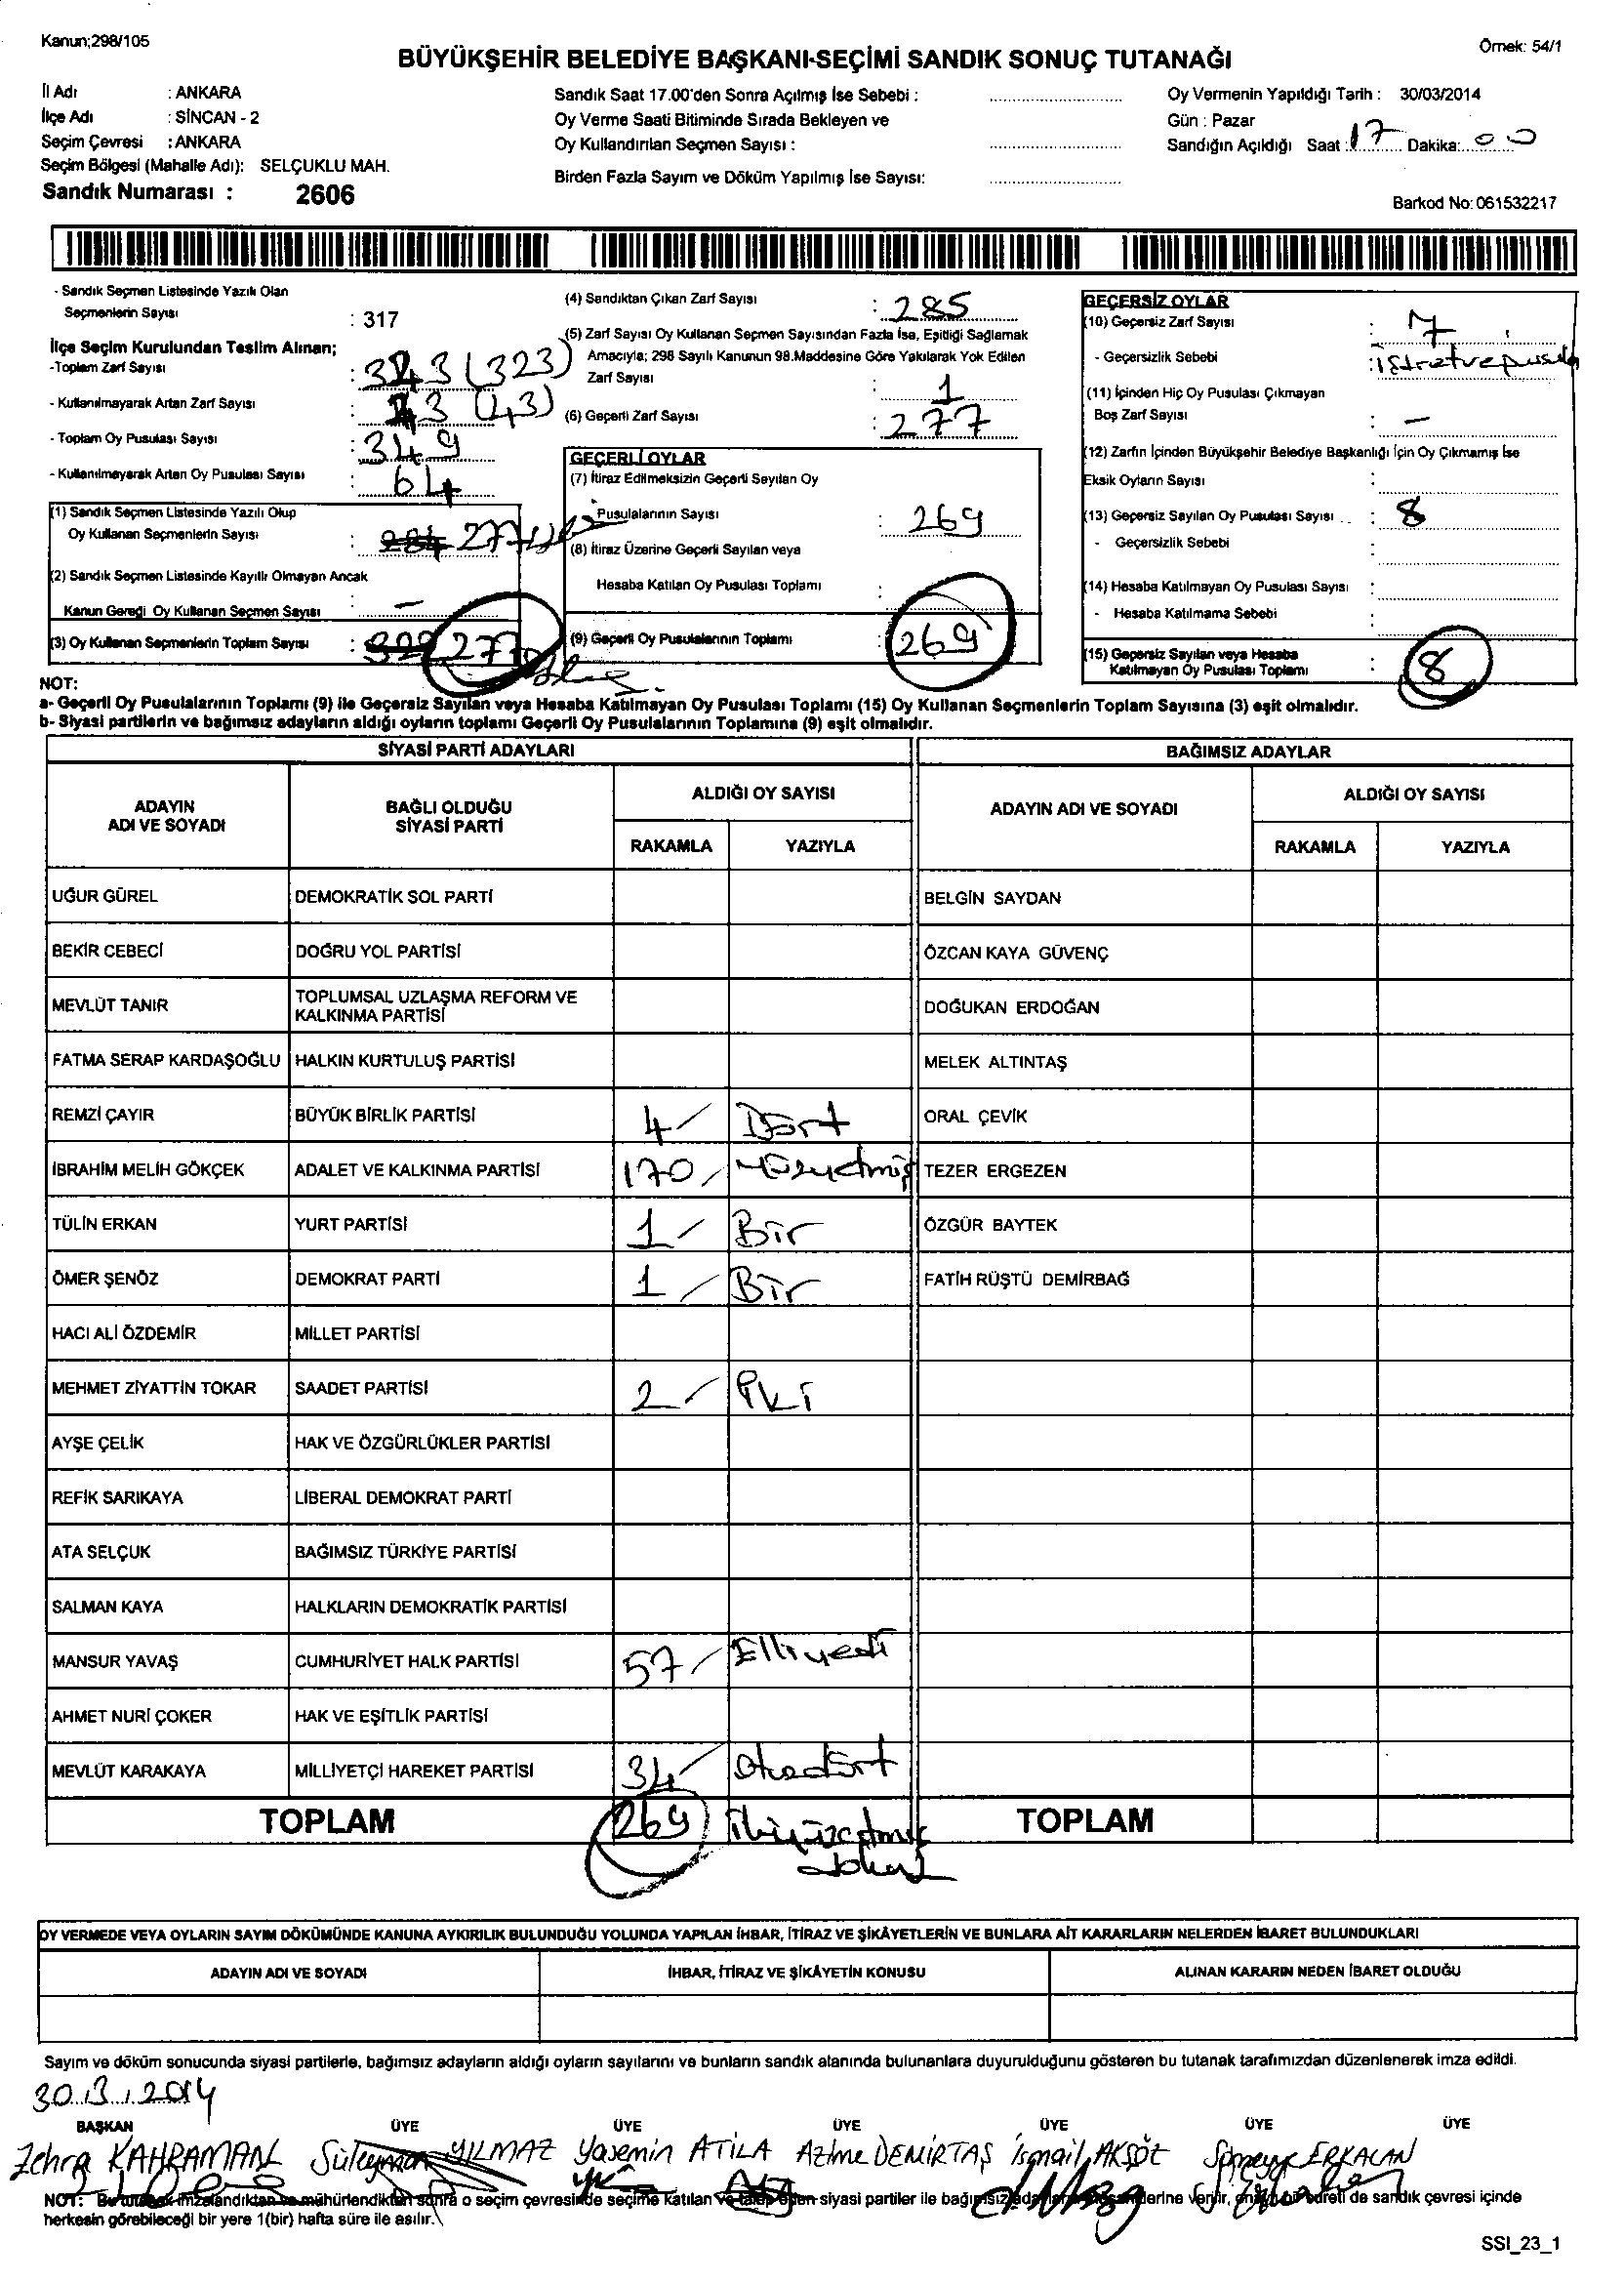 Kanun;298/105
Örnek: 54/1
BÜYÜKŞEHİR BELEDİYE BAŞKANI-SEÇİMİ SANDIK SONUÇ TUTANAĞI
İl Adı : ANKARA
İlçe Adı : SİNCAN - 2
Seçim Çevresi : ANKARA
Seçim Bölgesi (Mahalle Adı): SELÇUKLU MAH.
Sandık Numarası : 2606
Sandık Saat 17.00'den Sonra Açılmış İse Sebebi :
Oy Verme Saati Bitiminde Sırada Bekleyen ve
Oy Kullandırılan Seçmen Sayısı :
Birden Fazla Sayım ve Döküm Yapılmış İse Sayısı:
Oy Vermenin Yapıldığı Tarih : 30/03/2014
Gün : Pazar
Sandığın Açıldığı Saat : 17 Dakika: 00
Barkod No: 061532217
- Sandık Seçmen Listesinde Yazılı Olan
Seçmenlerin Sayısı : 317
İlçe Seçim Kurulundan Teslim Alınan;
-Toplam Zarf Sayısı : (323)
- Kullanılmayarak Artan Zarf Sayısı : (43)
- Toplam Oy Pusulası Sayısı : 349
- Kullanılmayarak Artan Oy Pusulası Sayısı : 64
(1) Sandık Seçmen Listesinde Yazılı Olup
Oy Kullanan Seçmenlerin Sayısı : 277
(2) Sandık Seçmen Listesinde Kayıtlı Olmayan Ancak
Kanun Gereği Oy Kullanan Seçmen Sayısı : -
(3) Oy Kullanan Seçmenlerin Toplam Sayısı : 277
(4) Sandıktan Çıkan Zarf Sayısı : 285
(5) Zarf Sayısı Oy Kullanan Seçmen Sayısından Fazla İse, Eşitliği Sağlamak
Amacıyla; 298 Sayılı Kanunun 98.Maddesine Göre Yakılarak Yok Edilen
Zarf Sayısı : 1
(6) Geçerli Zarf Sayısı : 277
GEÇERLİ OYLAR
(7) İtiraz Edilmeksizin Geçerli Sayılan Oy
Pusulalarının Sayısı : 269
(8) İtiraz Üzerine Geçerli Sayılan veya
Hesaba Katılan Oy Pusulası Toplamı :
(9) Geçerli Oy Pusulalarının Toplamı : 269
GEÇERSİZ OYLAR
(10) Geçersiz Zarf Sayısı : 7
- Geçersizlik Sebebi :
(11) İçinden Hiç Oy Pusulası Çıkmayan
Boş Zarf Sayısı : -
(12) Zarfın İçinden Büyükşehir Belediye Başkanlığı İçin Oy Çıkmamış İse
Eksik Oyların Sayısı :
(13) Geçersiz Sayılan Oy Pusulası Sayısı .. : 8
- Geçersizlik Sebebi :
(14) Hesaba Katılmayan Oy Pusulası Sayısı :
- Hesaba Katılmama Sebebi :
(15) Geçersiz Sayılan veya Hesaba
Katılmayan Oy Pusulası Toplamı : 8
NOT:
a- Geçerli Oy Pusulalarının Toplamı (9) ile Geçersiz Sayılan veya Hesaba Katılmayan Oy Pusulası Toplamı (15) Oy Kullanan Seçmenlerin Toplam Sayısına (3) eşit olmalıdır.
b- Siyasi partilerin ve bağımsız adayların aldığı oyların toplamı Geçerli Oy Pusulalarının Toplamına (9) eşit olmalıdır.
SİYASİ PARTİ ADAYLARI BAĞIMSIZ ADAYLAR
ADAYIN ADI VE SOYADI
BAĞLI OLDUĞU SİYASİ PARTİ
ALDIĞI OY SAYISI
RAKAMLA YAZIYLA
ADAYIN ADI VE SOYADI
ALDIĞI OY SAYISI
RAKAMLA YAZIYLA
UĞUR GÜREL DEMOKRATİK SOL PARTİ BELGİN SAYDAN
BEKİR CEBECİ DOĞRU YOL PARTİSİ ÖZCAN KAYA GÜVENÇ
MEVLÜT TANIR TOPLUMSAL UZLAŞMA REFORM VE KALKINMA PARTİSİ DOĞUKAN ERDOĞAN
FATMA SERAP KARDAŞOĞLU HALKIN KURTULUŞ PARTİSİ MELEK ALTINTAŞ
REMZİ ÇAYIR BÜYÜK BİRLİK PARTİSİ 4 / Dört ORAL ÇEVİK
İBRAHİM MELİH GÖKÇEK ADALET VE KALKINMA PARTİSİ 170 / Yüzyetmiş TEZER ERGEZEN
TÜLİN ERKAN YURT PARTİSİ 1 / Bir ÖZGÜR BAYTEK
ÖMER ŞENÖZ DEMOKRAT PARTİ 1 / Bir FATİH RÜŞTÜ DEMİRBAĞ
HACI ALİ ÖZDEMİR MİLLET PARTİSİ
MEHMET ZİYATTİN TOKAR SAADET PARTİSİ 2 / iki
AYŞE ÇELİK HAK VE ÖZGÜRLÜKLER PARTİSİ
REFİK SARIKAYA LİBERAL DEMOKRAT PARTİ
ATA SELÇUK BAĞIMSIZ TÜRKİYE PARTİSİ
SALMAN KAYA HALKLARIN DEMOKRATİK PARTİSİ
MANSUR YAVAŞ CUMHURİYET HALK PARTİSİ 57 / Elliyedi
AHMET NURİ ÇOKER HAK VE EŞİTLİK PARTİSİ
MEVLÜT KARAKAYA MİLLİYETÇİ HAREKET PARTİSİ 34 / otuzdört
TOPLAM 269 ikiyüzatmış dokuz TOPLAM
OY VERMEDE VEYA OYLARIN SAYIM DÖKÜMÜNDE KANUNA AYKIRILIK BULUNDUĞU YOLUNDA YAPILAN İHBAR, İTİRAZ VE ŞİKÂYETLERİN VE BUNLARA AİT KARARLARIN NELERDEN İBARET BULUNDUKLARI
ADAYIN ADI VE SOYADI İHBAR, İTİRAZ VE ŞİKÂYETİN KONUSU ALINAN KARARIN NEDEN İBARET OLDUĞU
Sayım ve döküm sonucunda siyasi partilerle, bağımsız adayların aldığı oyların sayılarını ve bunların sandık alanında bulunanlara duyurulduğunu gösteren bu tutanak tarafımızdan düzenlenerek imza edildi.
30.3.2014
BAŞKAN ÜYE ÜYE ÜYE ÜYE ÜYE ÜYE
Zehra KAHRAMAN Süleyman YILMAZ Yasemin ATİLA Azime DEMİRTAŞ İsmail AKSÖZ Sümeyye ERKALAN
NOT: Bu tutanak imzalandıktan ve mühürlendikten sonra o seçim çevresinde seçime katılan ve talep eden siyasi partiler ile bağımsız verilir, de sandık çevresi içinde
herkesin görebileceği bir yere 1(bir) hafta süre ile asılır.
SSI_23_1